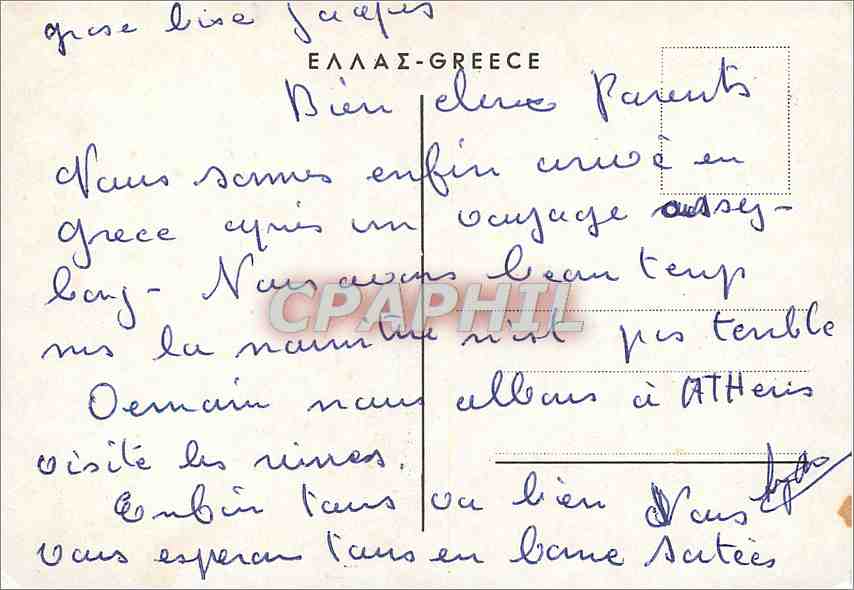 grose bise Jacques
ΕΛΛΑΣ-GREECE
Bien chers Parents
Nous sommes enfin arrivé en
Grece après un voyage assez
long - Nous avons beau temp
CPAPHIL
mes la nourriture n'est pas terrible
Demain nous allons à ATHenes
visité les ruines.
Enfin tous va bien Nous
vous esperon tous en bonne Santées